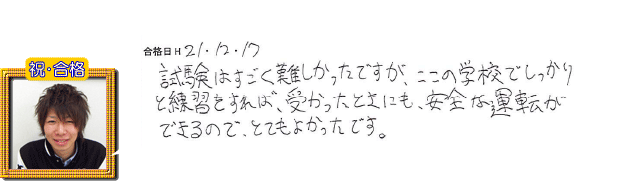 合格日 H 21・12・17
祝・合格
試験はすごく難しかったですが、ここの学校でしっかり
と練習をすれば、受かったときにも、安全な運転が
できるので、とてもよかったです。